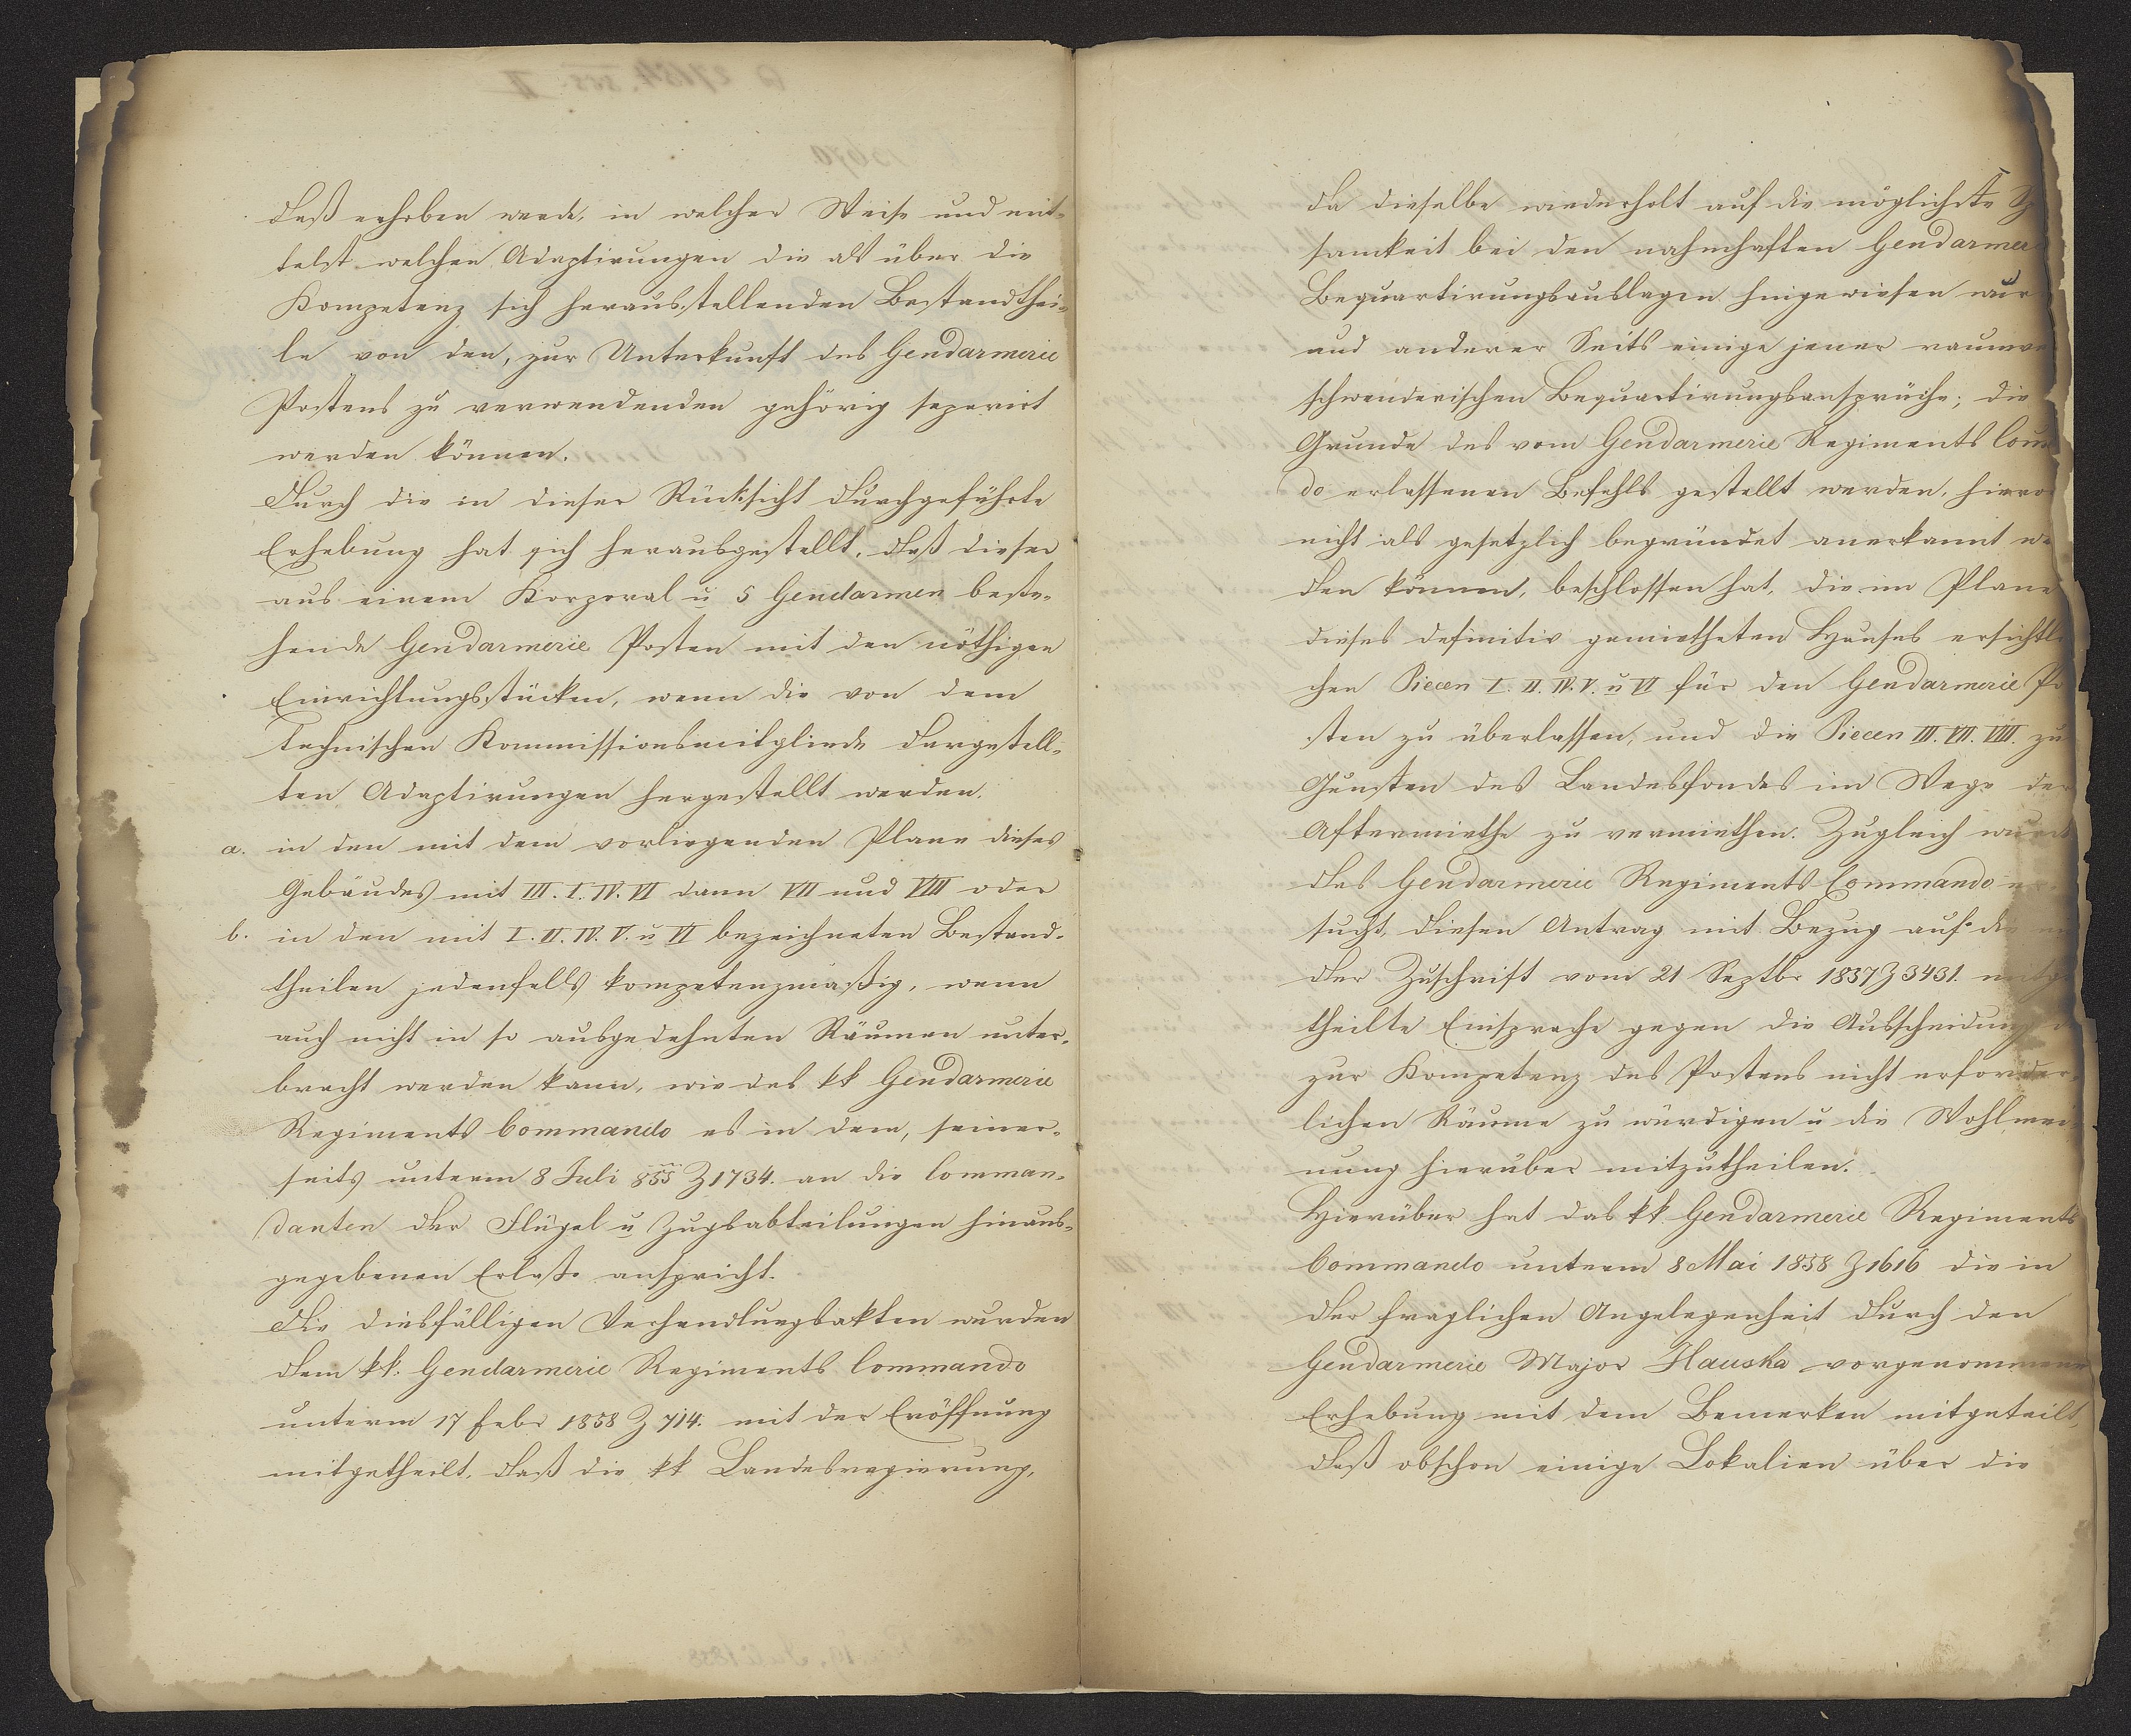 daß erhoben werde, in welcher Weise und mit-
telst welchen Adaptirungen die als über die
Kompetenz sich herausstellenden Bestandthei-
le von den, zur Unterkunft des Gendarmerie
Postens zu verwendenden gehörig separirt
werden können.
Durch die in dieser Rücksicht durchgeführte
Erhebung hat sich herausgestellt, daß dieser
aus einem Korporal u 5 Gendarmen beste-
hende Gendarmerie Posten mit den nöthigen
Einrichtungsstücken, wenn die von dem
technischen Kommissionsmitgliede dargestell-
ten Adaptirungen hergestellt werden.
a. in den mit dem vorliegenden Plane dieses
Gebäudes mit III. I. IV. VI dann VII und VIII oder
b. in den mit I. II. IV. V. u VI bezeichneten Bestand-
theilen jedenfalls kompetenzmäßig, wenn
auch nicht in so ausgedehnten Räumen unter-
bracht werden kann, wie das kk Gendarmerie
Regiments Commando es in dem, seiner-
seits unterm 8 Juli 855 Z 1734. an die Comman-
danten der Flügel u Zugsabteilungen hinaus-
gegebenen Erlaße anspricht.
Die diesfälligen Verhandlungsakten wurden
dem kk. Gendarmerie Regiments Commando
unterm 17 Febr 1858 Z 714. mit der Eröffnung
mitgetheilt, daß die kk Landesregierung,
da dieselbe wiederholt auf die möglichste
samkeit bei den nahmhaften Gendarmer
Bequartirungsauslagen hingewiesen wur
und anderer Seits einige jener raumve
schwenderischen Bequartirungsansprüche, die
Grunde des vom Gendarmerie Regiments Com
do erlassenen Befehls gestellt werden, hiero
nicht als gesetzlich begründet anerkannt we
den können, beschlossen hat, die im Plane
dieses definitiv gemietheten Hauses ersichtli
chen Piecen I. II. IV. V. u VI für den Gendarmerie Po
sten zu überlassen, und die Piecen III. VII. VIII. zu
Gunsten des Landesfondes im Wege der
Aftermiethe zu vermiethen. Zugleich wurde
das Gendarmerie Regiments Commando er-
sucht, diesen Antrag mit Bezug auf die
der Zuschrift vom 21 Septbr 1857 Z 3431. mitge
theilte Einsprache gegen die Ausscheidung
zur Kompetenz des Postens nicht erforder-
lichen Räume zu würdigen u die Wohlmei
nung hierüber mitzutheilen.
Hierüber hat das kk Gendarmerie Regiments
Commando unterm 8 Mai 1858 Z 1616 die in
der fraglichen Angelegenheit durch den
Gendarmerie Major Hauska vorgenommene
Erhebung mit dem Bemerken mitgeteilt,
daß obschon einige Lokalien über die